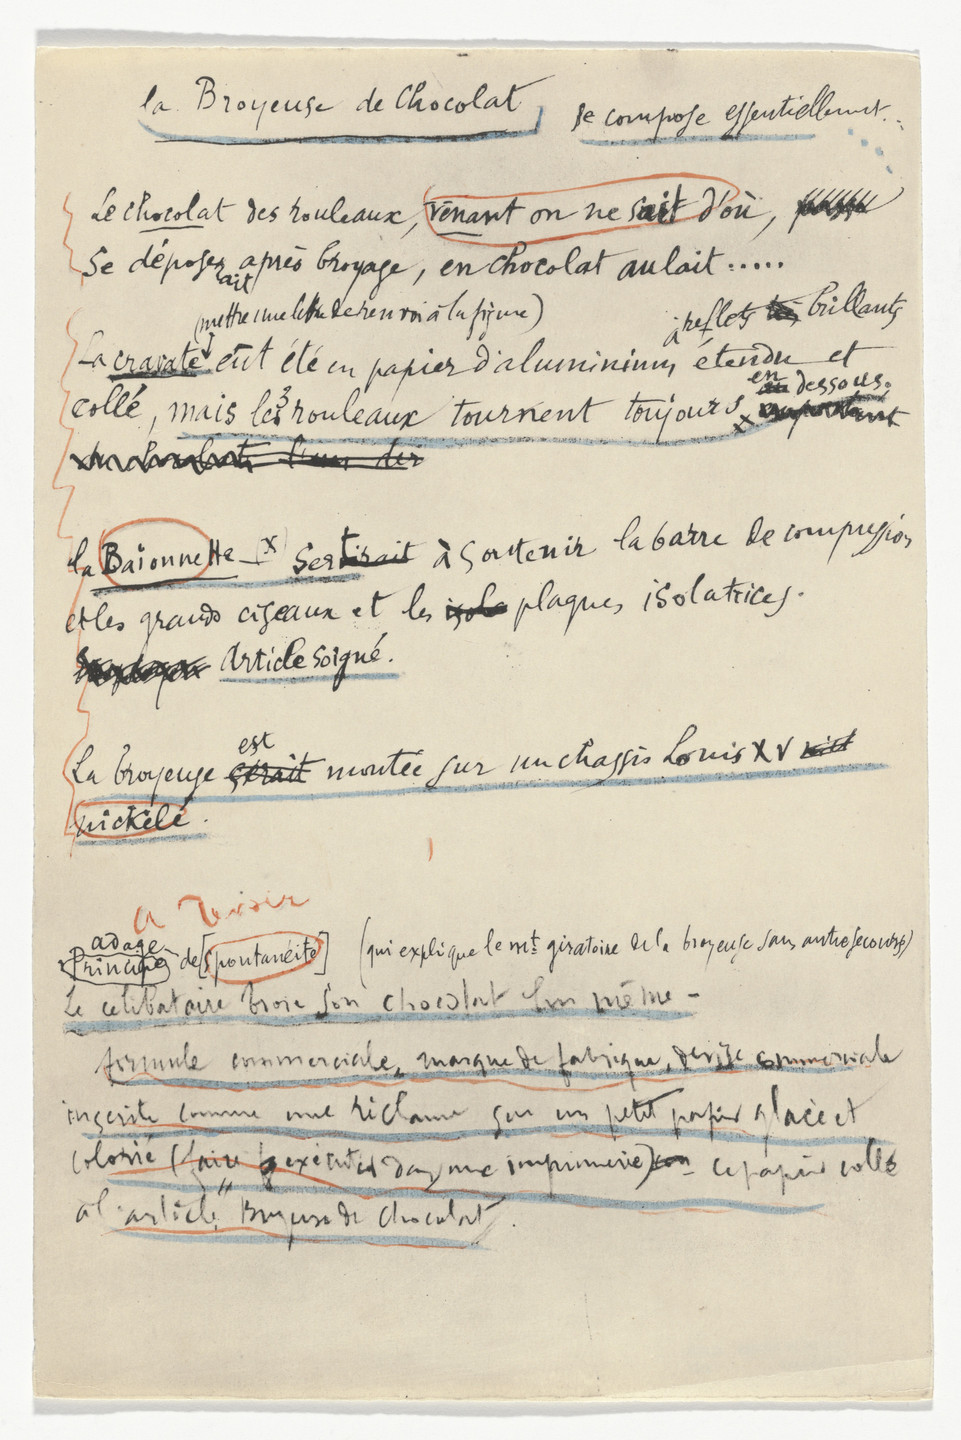 la Broyeuse de Chocolat se compose essentiellement...
Le chocolat des rouleaux, venant on ne sait d'où,
se déposerait après broyage, en chocolat au lait.....
(mettre une lettre de renvoi à la figure)
à reflets brillants
La cravate eût été en papier d'aluminium, étendu et
collé, mais les 3 rouleaux tournent toujours en dessous.
x
la Baïonnette (x) sert à soutenir la barre de compression
et les grands ciseaux et les plaques isolatrices.
Article soigné.
est
La broyeuse serait montée sur un chassis Louis XV
nickelé.
A revoir
adage
Principe de [spontanéité] (qui explique le mt giratoire de la broyeuse sans autre secours)
Le célibataire broie son chocolat lui même –
formule commerciale, marque de fabrique, devise commerciale
inscrite comme une réclame sur un petit papier glacé et
colorié (faire exécuter dans une imprimerie) ce papier collé
à l'article "Broyeuse de Chocolat".